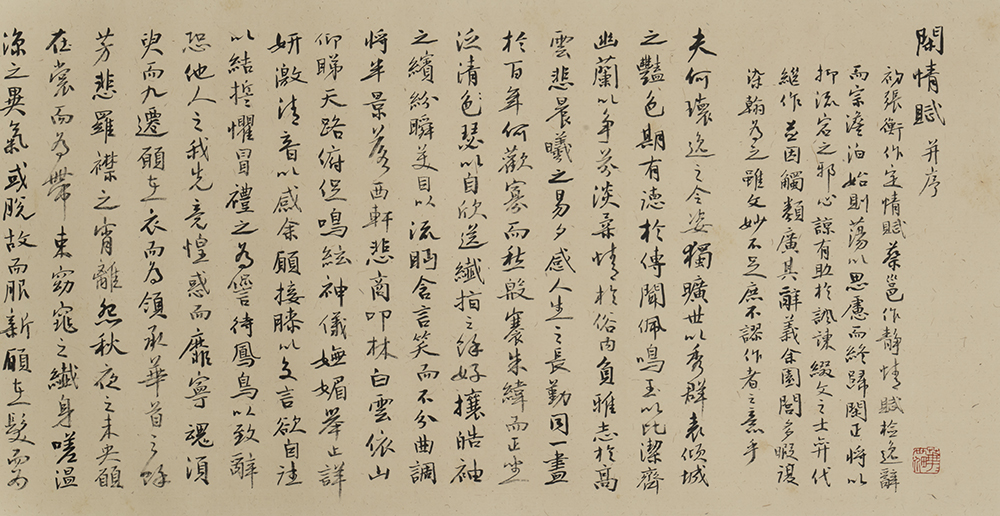 閑情賦 并序
初張衡作定情賦蔡邕作靜情賦檢逸辭
而宗澹泊始則蕩以思慮而終歸閑正將以
抑流宕之邪心諒有助於諷諫綴文之士弈代
繼作並因觸類廣其辭義余園閭多暇復
染翰為之雖文妙不足庶不謬作者之意乎
夫何瓌逸之令姿獨曠世以秀群表傾城
之豔色期有德於傳聞佩鳴玉以比潔齊
幽蘭以爭芬淡柔情於俗內負雅志於高
雲悲晨曦之易夕感人生之長勤同一盡
於百年何歡寡而愁殷褰朱幃而正坐
泛清瑟以自欣送纖指之餘好攘皓袖
之繽紛瞬美目以流眄含言笑而不分曲調
將半景落西軒悲商叩林白雲依山
仰睇天路俯促鳴絃神儀嫵媚舉止詳
妍激清音以感余願接膝以交言欲自往
以結誓懼冒禮之為諐待鳳鳥以致辭
恐他人之我先意惶惑而靡寧魂須
臾而九遷願在衣而為領承華首之餘
芳悲羅襟之宵離怨秋夜之未央願
在裳而為帶束窈窕之纖身嗟溫
涼之異氣或脫故而服新願在髮而為